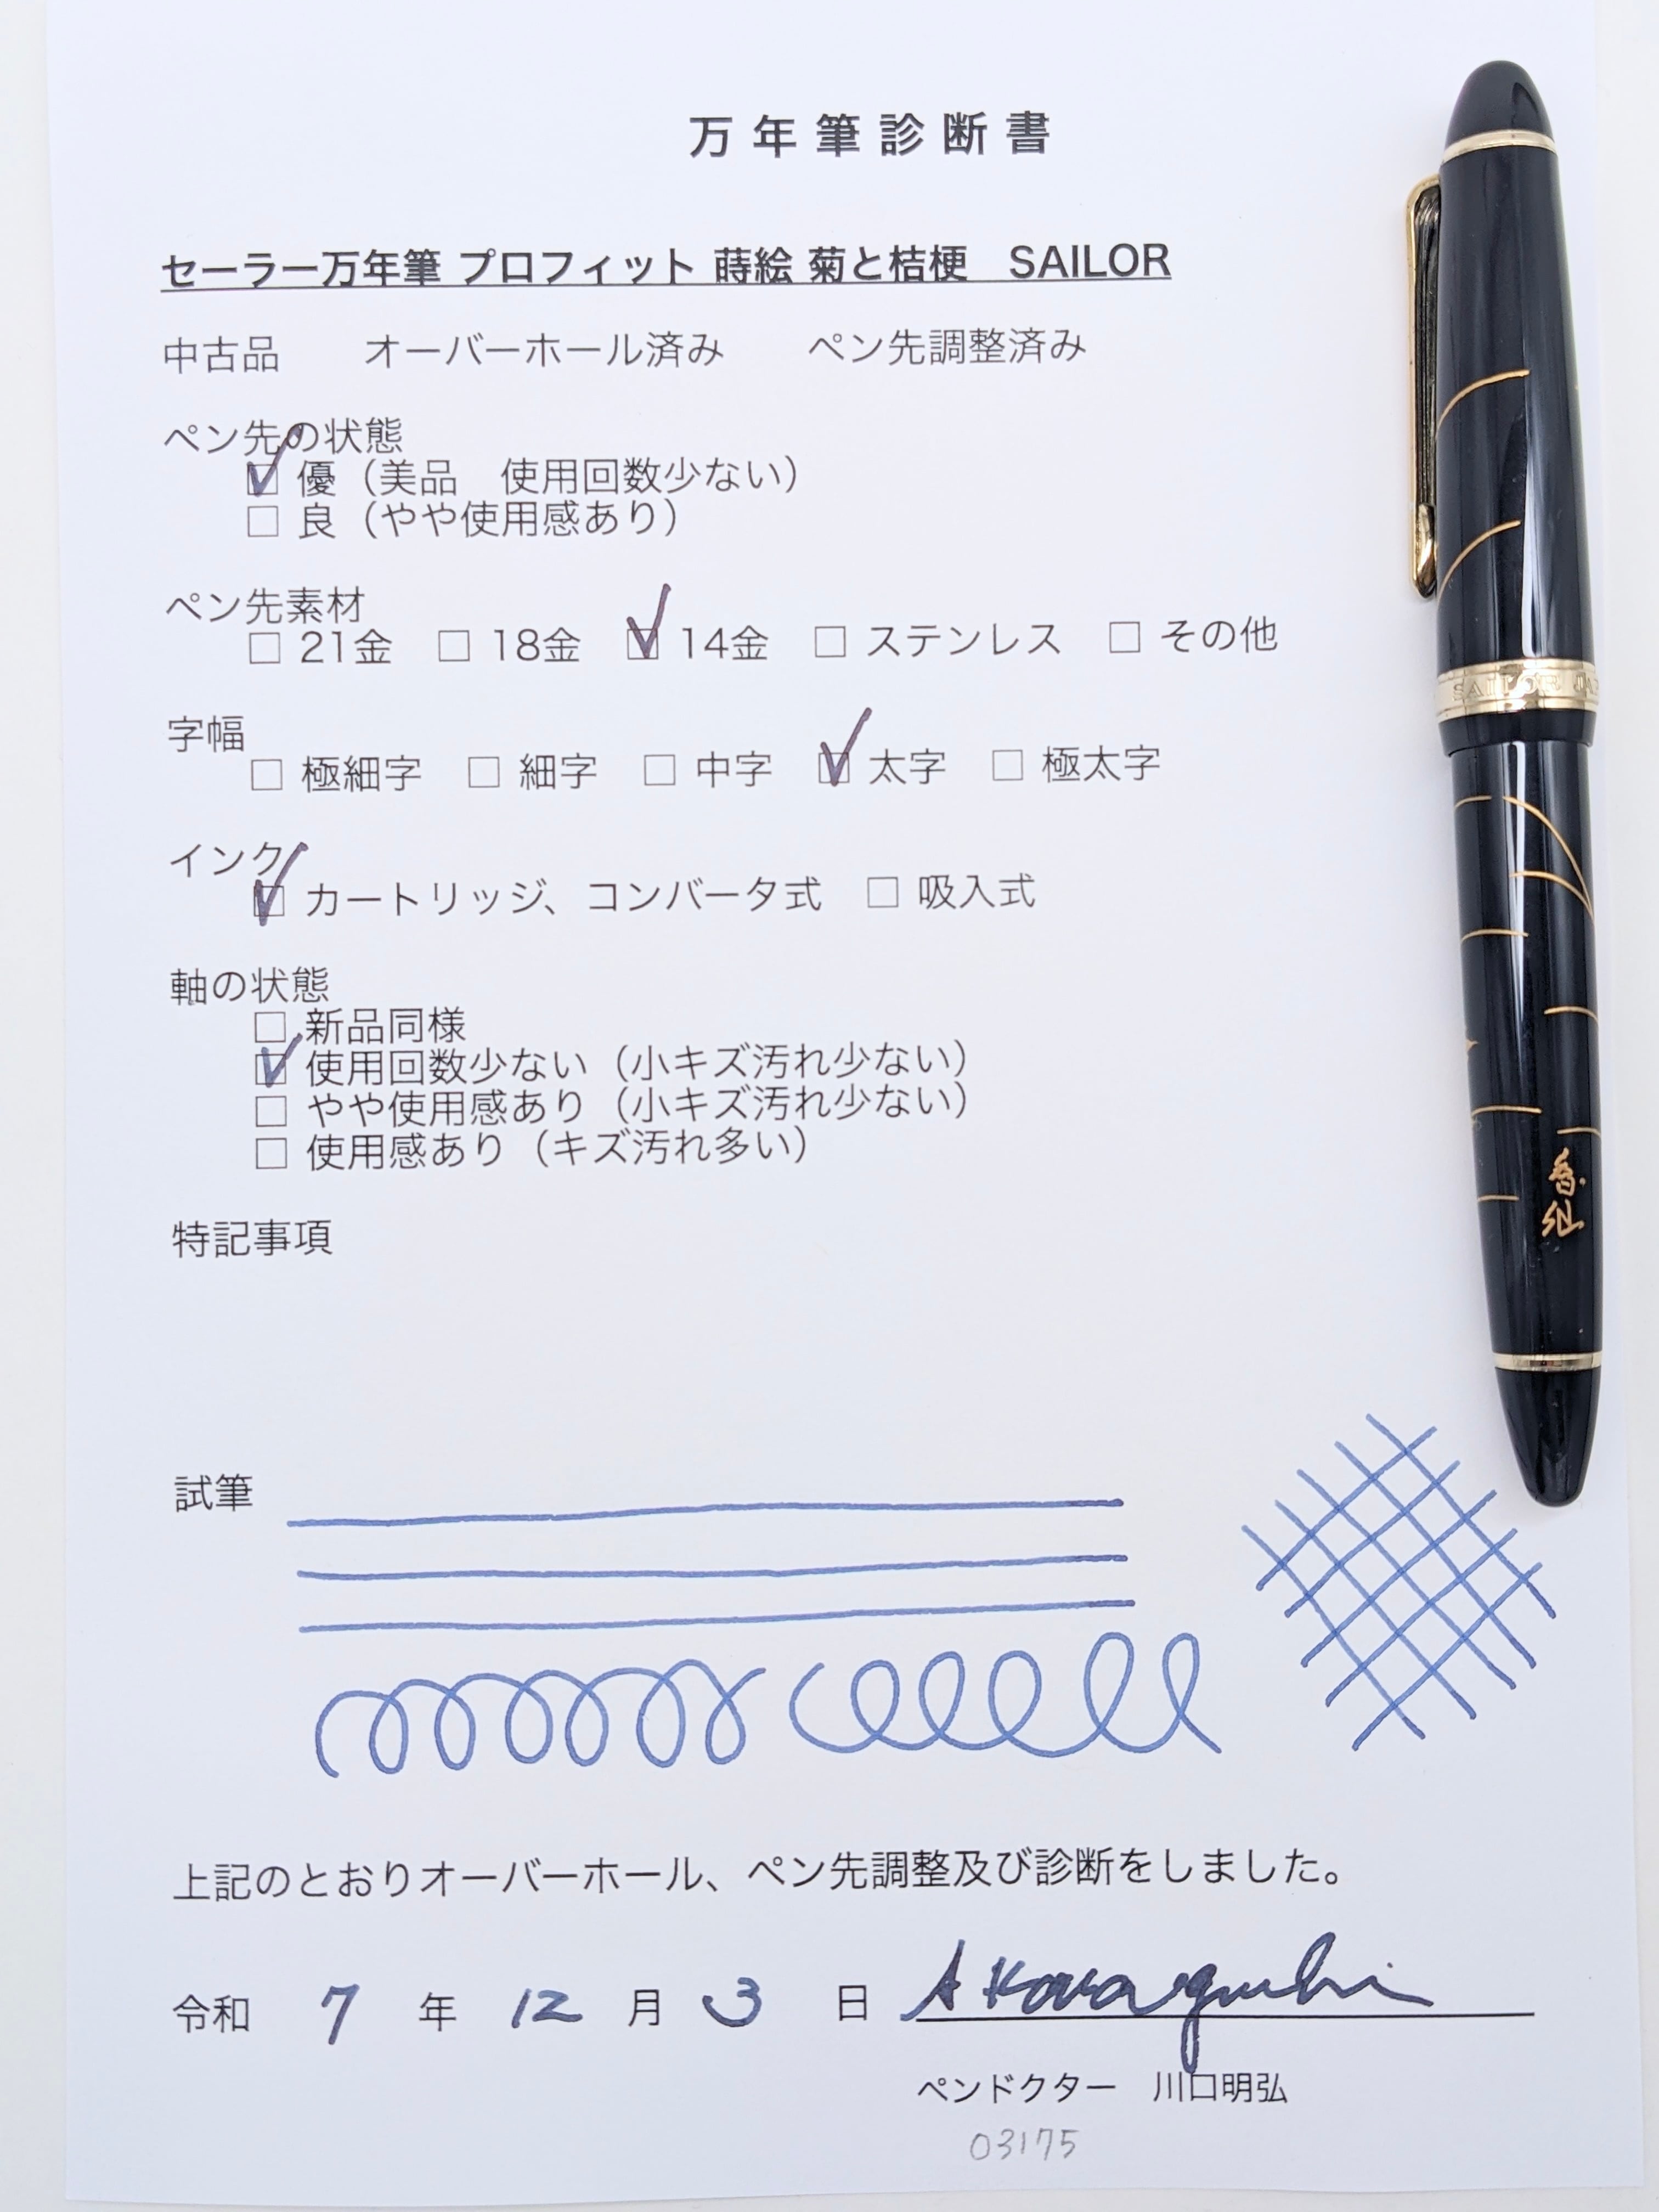 万年筆診断書
セーラー万年筆 プロフィット 蒔絵 菊と桔梗　SAILOR
中古品　　オーバーホール済み　　ペン先調整済み
ペン先の状態
☑ 優（美品　使用回数少ない）
□ 良（やや使用感あり）
ペン先素材
□ 21金　□ 18金　☑ 14金　□ ステンレス　□ その他
字幅
□ 極細字　□ 細字　□ 中字　☑ 太字　□ 極太字
インク
☑ カートリッジ、コンバータ式　□ 吸入式
軸の状態
□ 新品同様
☑ 使用回数少ない（小キズ汚れ少ない）
□ やや使用感あり（小キズ汚れ少ない）
□ 使用感あり（キズ汚れ多い）
特記事項
試筆
上記のとおりオーバーホール、ペン先調整及び診断をしました。
令和 7 年 12 月 3 日 A Kawaguchi
ペンドクター　川口明弘
03175
SAILOR JA